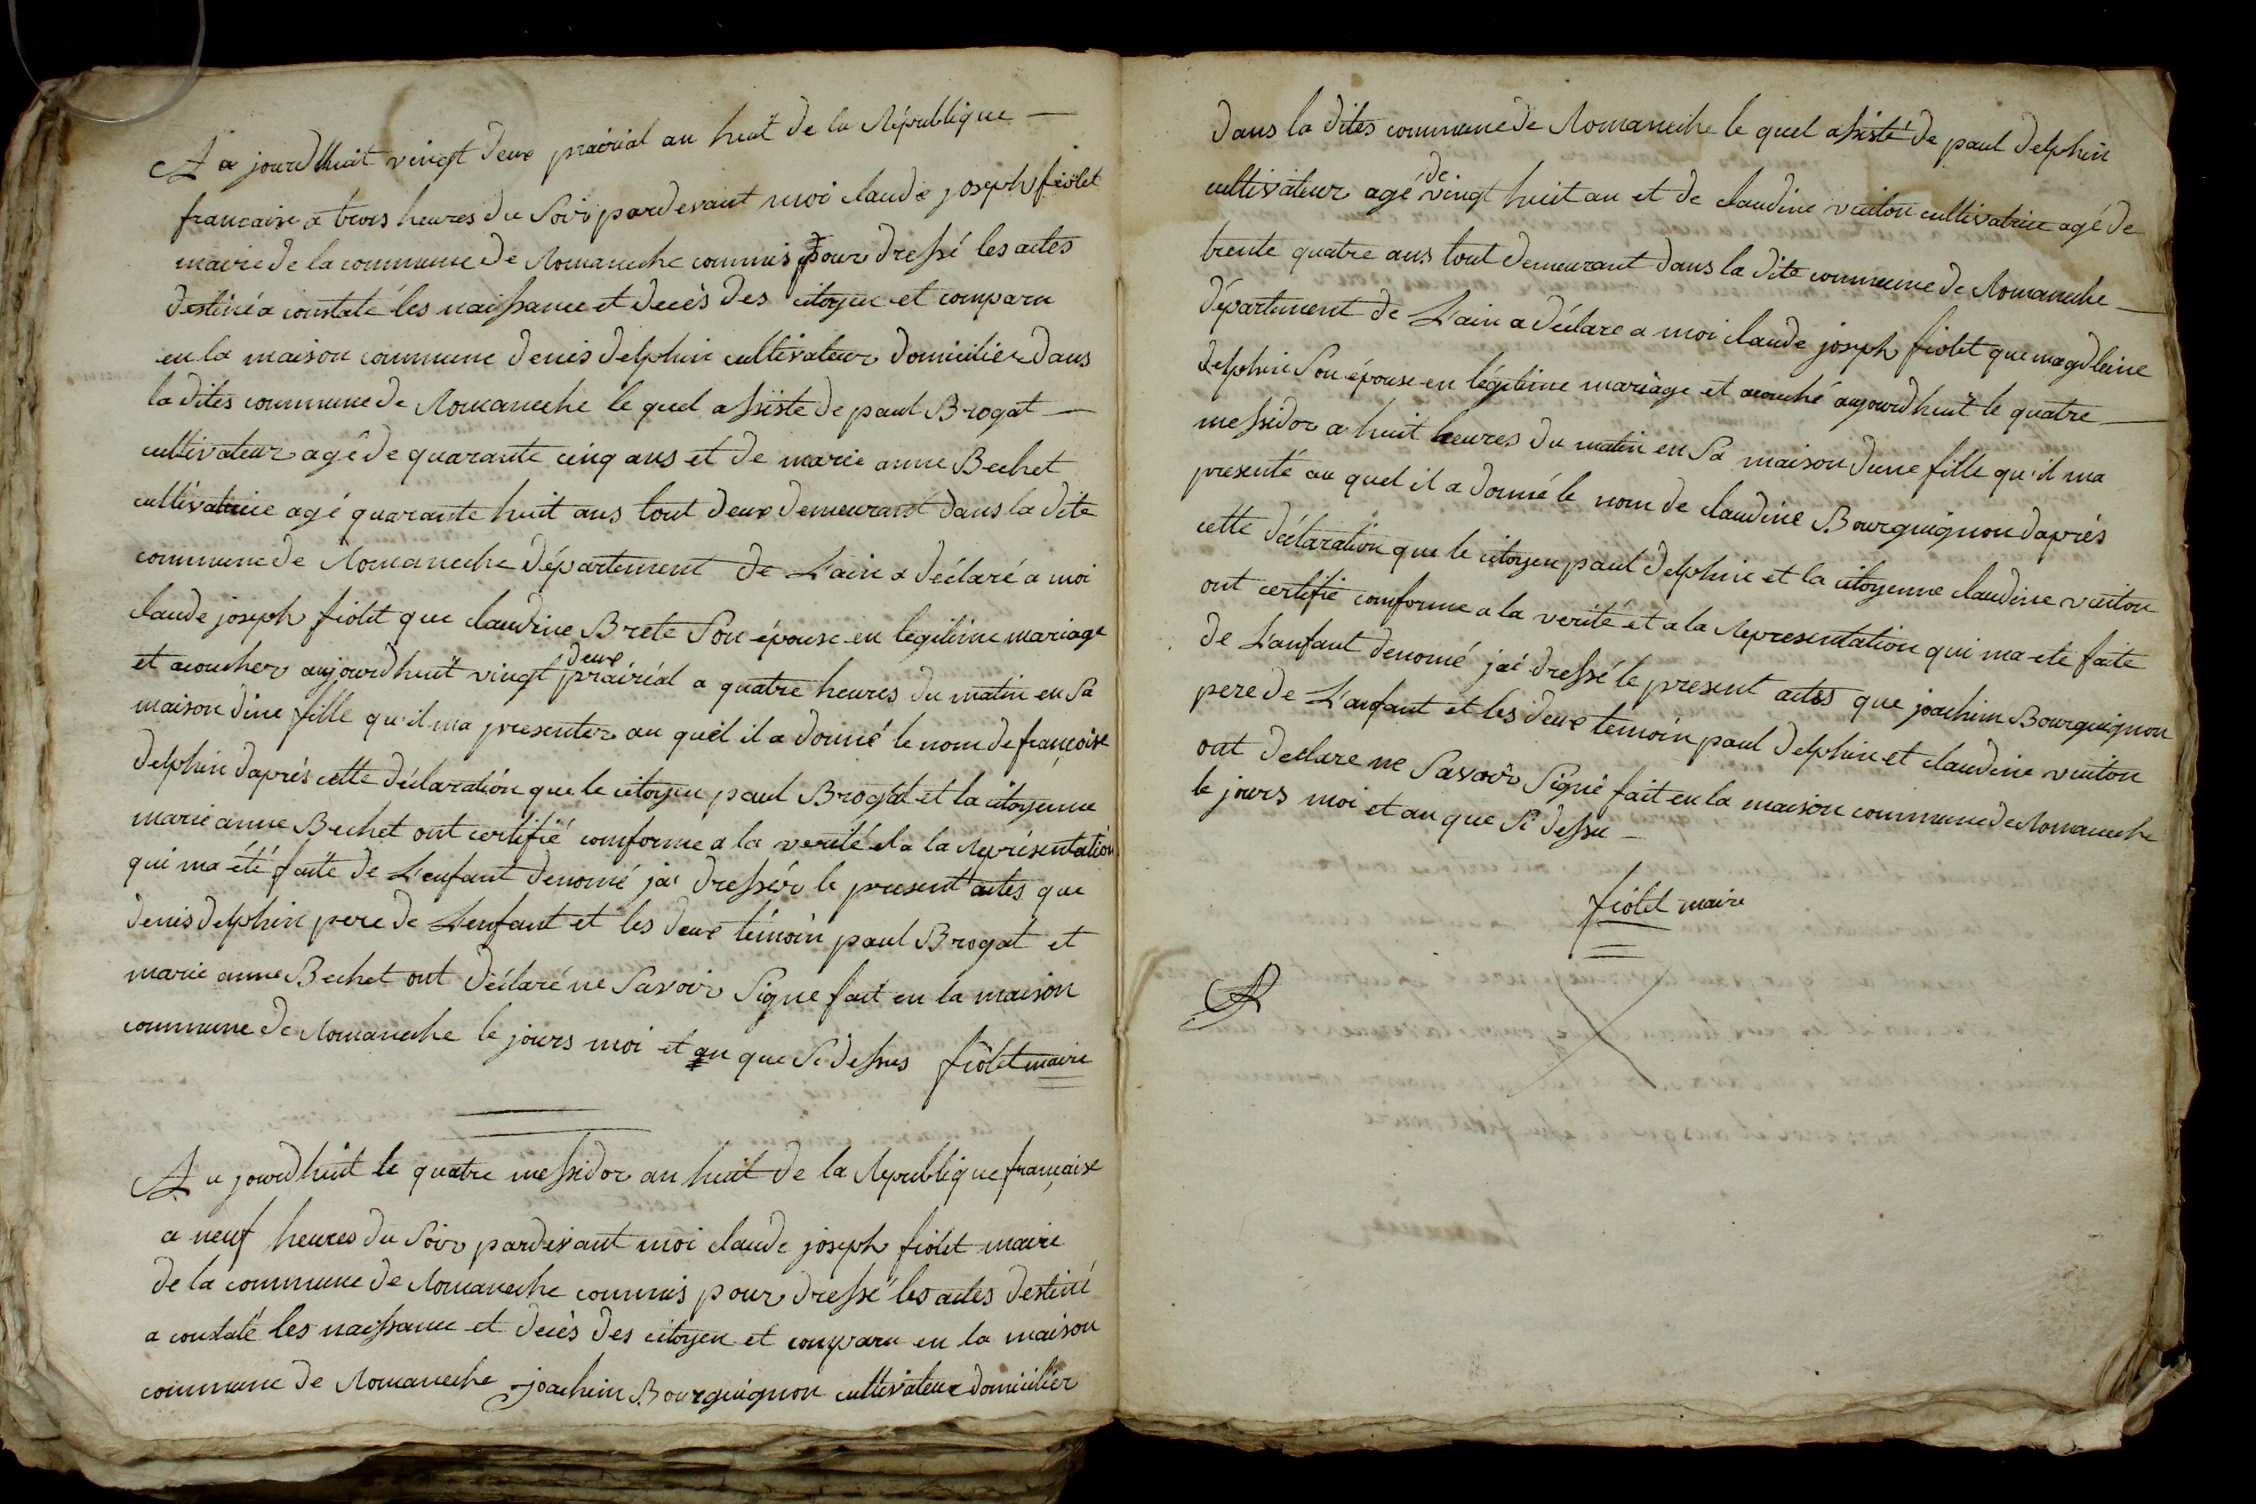 Au jourdhuit vingt deux prairial an huit de la République —
francaise a trois heures du Soir pardevant moi claude joseph fiolet
maire de la commune de Romaneche commis pour dressé les actes
destiné a constaté les naissance et decès des citoyen et comparu
en la maison commune denis delphin cultivateur domicilier dans
la dites commune de Romaneche le quel assiste de paul Brogat —
cultivateur agé de quarante cinq ans et de marie anne Bechet
cultivatrice agé quarante huit ans tout deux demeurant dans la dite
commune de Romaneche département de L'ain a déclaré a moi
claude joseph fiolet que claudine Brete Son épouse en legitime mariage
et acoucher aujourdhuit vingt deux prairial a quatre heures du matin en Sa
maison dine fille qu'il ma presenter au quel il a donné le nom de françoise
delphin daprés cette déclaration que le citoyen paul Brogat et la citoyenne
marie anne Bechet ont certifié comforme a la verité et a la représentation
qui ma été faite de L'enfant denomé jai dressér le present actes que
denis delphin pere de L'enfant et les deux témoin paul Brogat et
marie anne Bechet ont déclaré ne Savoir Signe fait en la maison
commune de Romaneche le jours moi et an que Si dessus fiolet maire
Au jourdhuit le quatre messidor an huit de la Republique française
a neuf heures du Soir pardevant moi claude joseph fiolet maire
de la commune de Romaneche commis pour dressé les actes destiné
a constaté les naissance et decès des citoyen et comparu en la maison
commune de Romaneche joachim Bourguignon cultivateur domicilier
dans la dites commune de Romaneche le quel assisté de paul delphin
cultivateur agé de vingt huit an et de claudine vuiton cultivatrice agé de
trente quatre ans tout demeurant dans la dite commune de Romaneche —
département de L'ain a déclare a moi claude joseph fiolet que magdleine
delphin Son épouse en légitime mariage et acouché aujourdhuit le quatre —
messidor a huit heures du matin en Sa maison dune fille qu'il ma
presenté au quel il a donné le nom de claudine Bourguignon daprés
cette déclaration que le citoyen paul delphin et la citoyenne claudine vuiton
ont certifié comforme a la verité et a la Representation qui ma ete faite
de L'anfant denomé jai dressé le present actes que joachim Bourguignon
pere de L'anfant et les deux temoin paul delphin et claudine vuiton
ont declare ne Savoir Signé fait en la maison commune de Romaneche
le jours moi et an que Si dessu —
fiolet maire